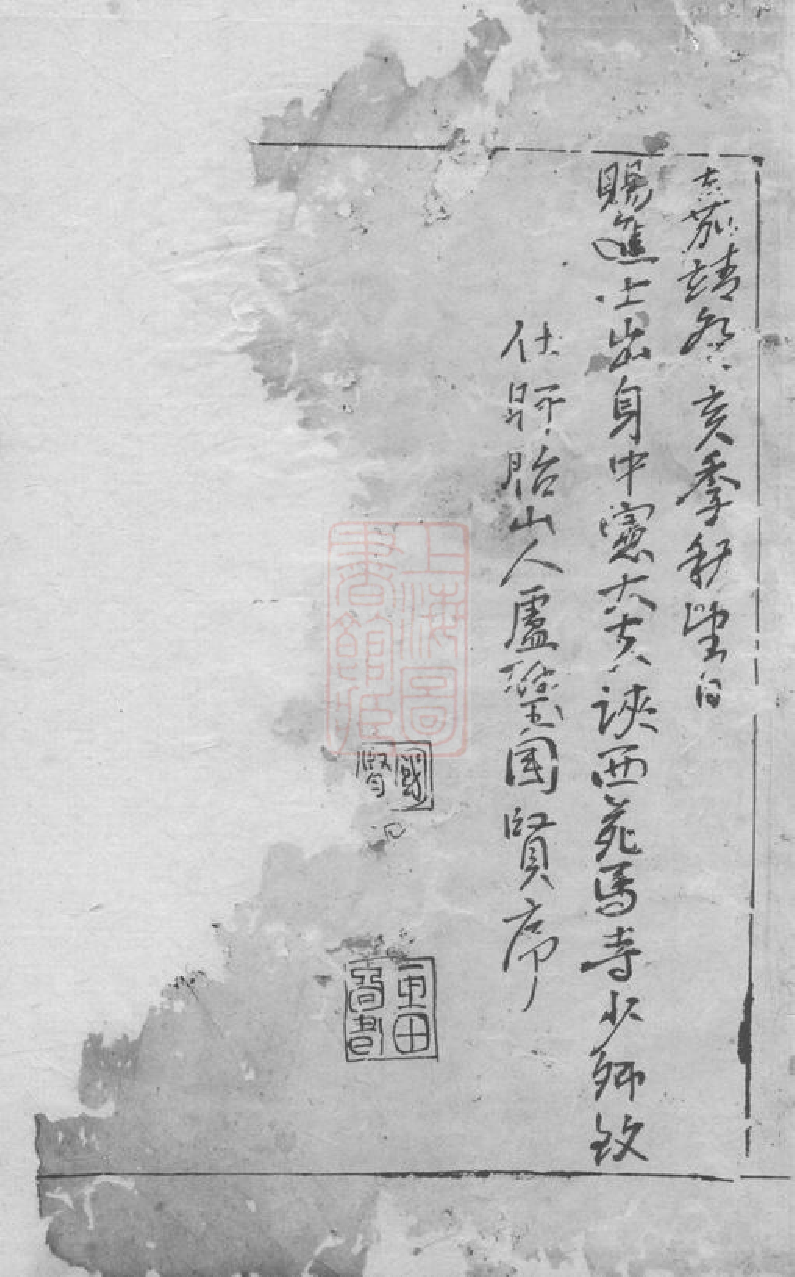 嘉靖癸亥季秋望日
賜進士出身中憲大夫陝西苑馬寺少卿致
仕盱眙山人盧璧國賢序
上海圖書館藏
國賢